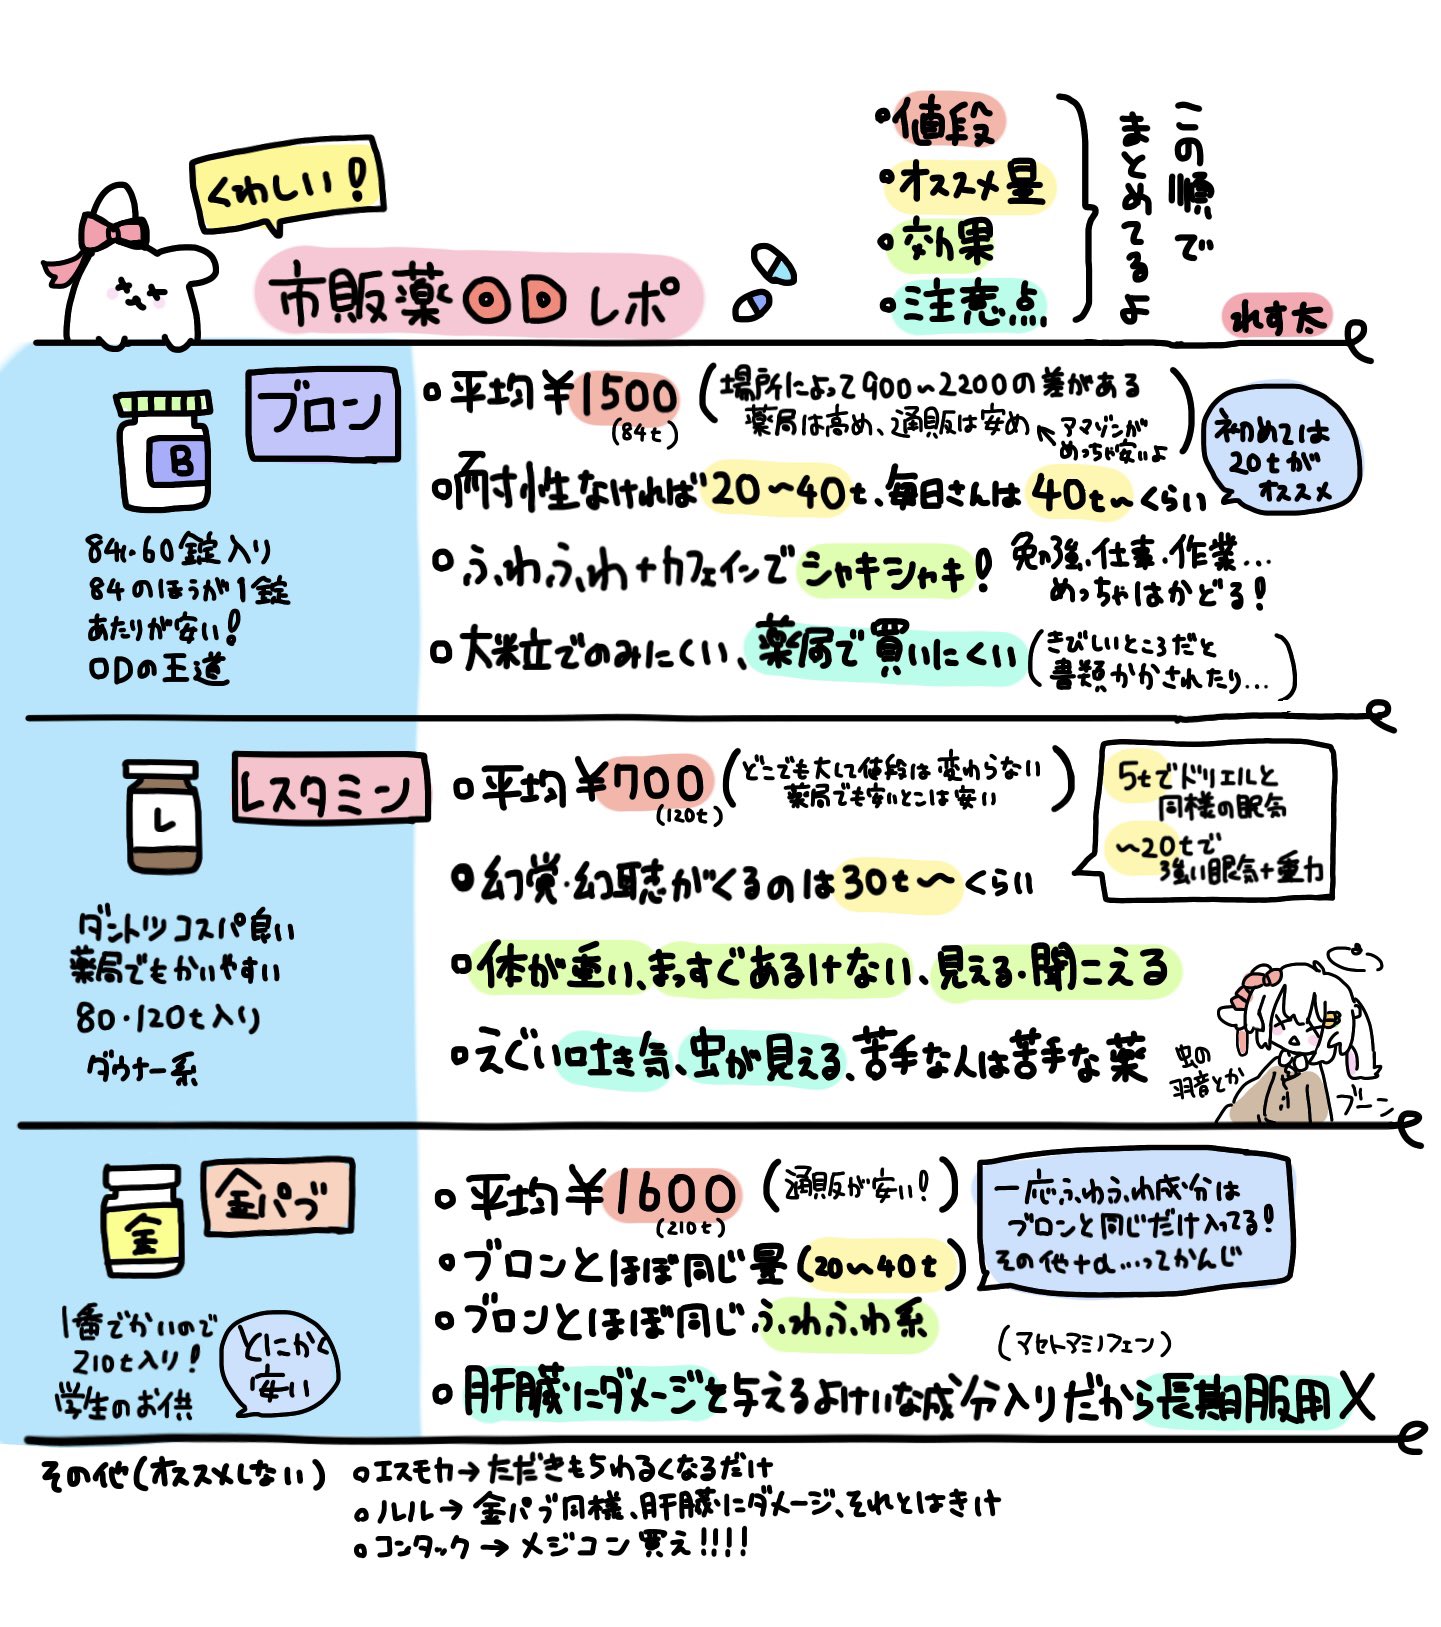 くわしい!
市販薬ODレポ
値段
オススメ量
効果
注意点
この順で
まとめてるよ
れす太
ブロン
84・60錠入り
84のほうが1錠
あたりが安い!
ODの王道
平均¥1500
(84t)
(場所によって900〜2200の差がある
薬局は高め、通販は安め←アマゾンが
めっちゃ安いよ)
初めては
20tが
オススメ
耐性なければ20〜40t、毎日さんは40t〜くらい
ふわふわ+カフェインでシャキシャキ!
勉強、仕事・作業…
めっちゃはかどる!
大粒でのみにくい、薬局で買いにくい
(きびしいところだと
書類かかされたり…)
レスタミン
レ
ダントツコスパ良い
薬局でもかいやすい
80・120t入り
ダウナー系
平均¥700
(120t)
(どこでも大して値段は変わらない
薬局でも安いとこは安い)
5tでドリエルと
同様の眠気
〜20tで
強い眠気+重力
幻覚・幻聴がくるのは30t〜くらい
体が重い、まっすぐあるけない、見える・聞こえる
えぐい吐き気、虫が見える、苦手な人は苦手な薬
虫の
羽音とか
ブーン
金パブ
金
1番でかいので
210t入り!
学生のお供
とにかく
安い
平均¥1600
(210t)
(通販が安い!)
一応ふわふわ成分は
ブロンと同じだけ入ってる!
その他+α…ってかんじ
ブロンとほぼ同じ量(20〜40t)
ブロンとほぼ同じふわふわ系
(アセトアミノフェン)
肝臓にダメージを与えるよけいな成分入りだから長期服用X
その他(オススメしない)
エスモカ→ただきもちわるくなるだけ
ルル→金パブ同様、肝臓にダメージ、それとはきけ
コンタック→メジコン買え!!!!
B